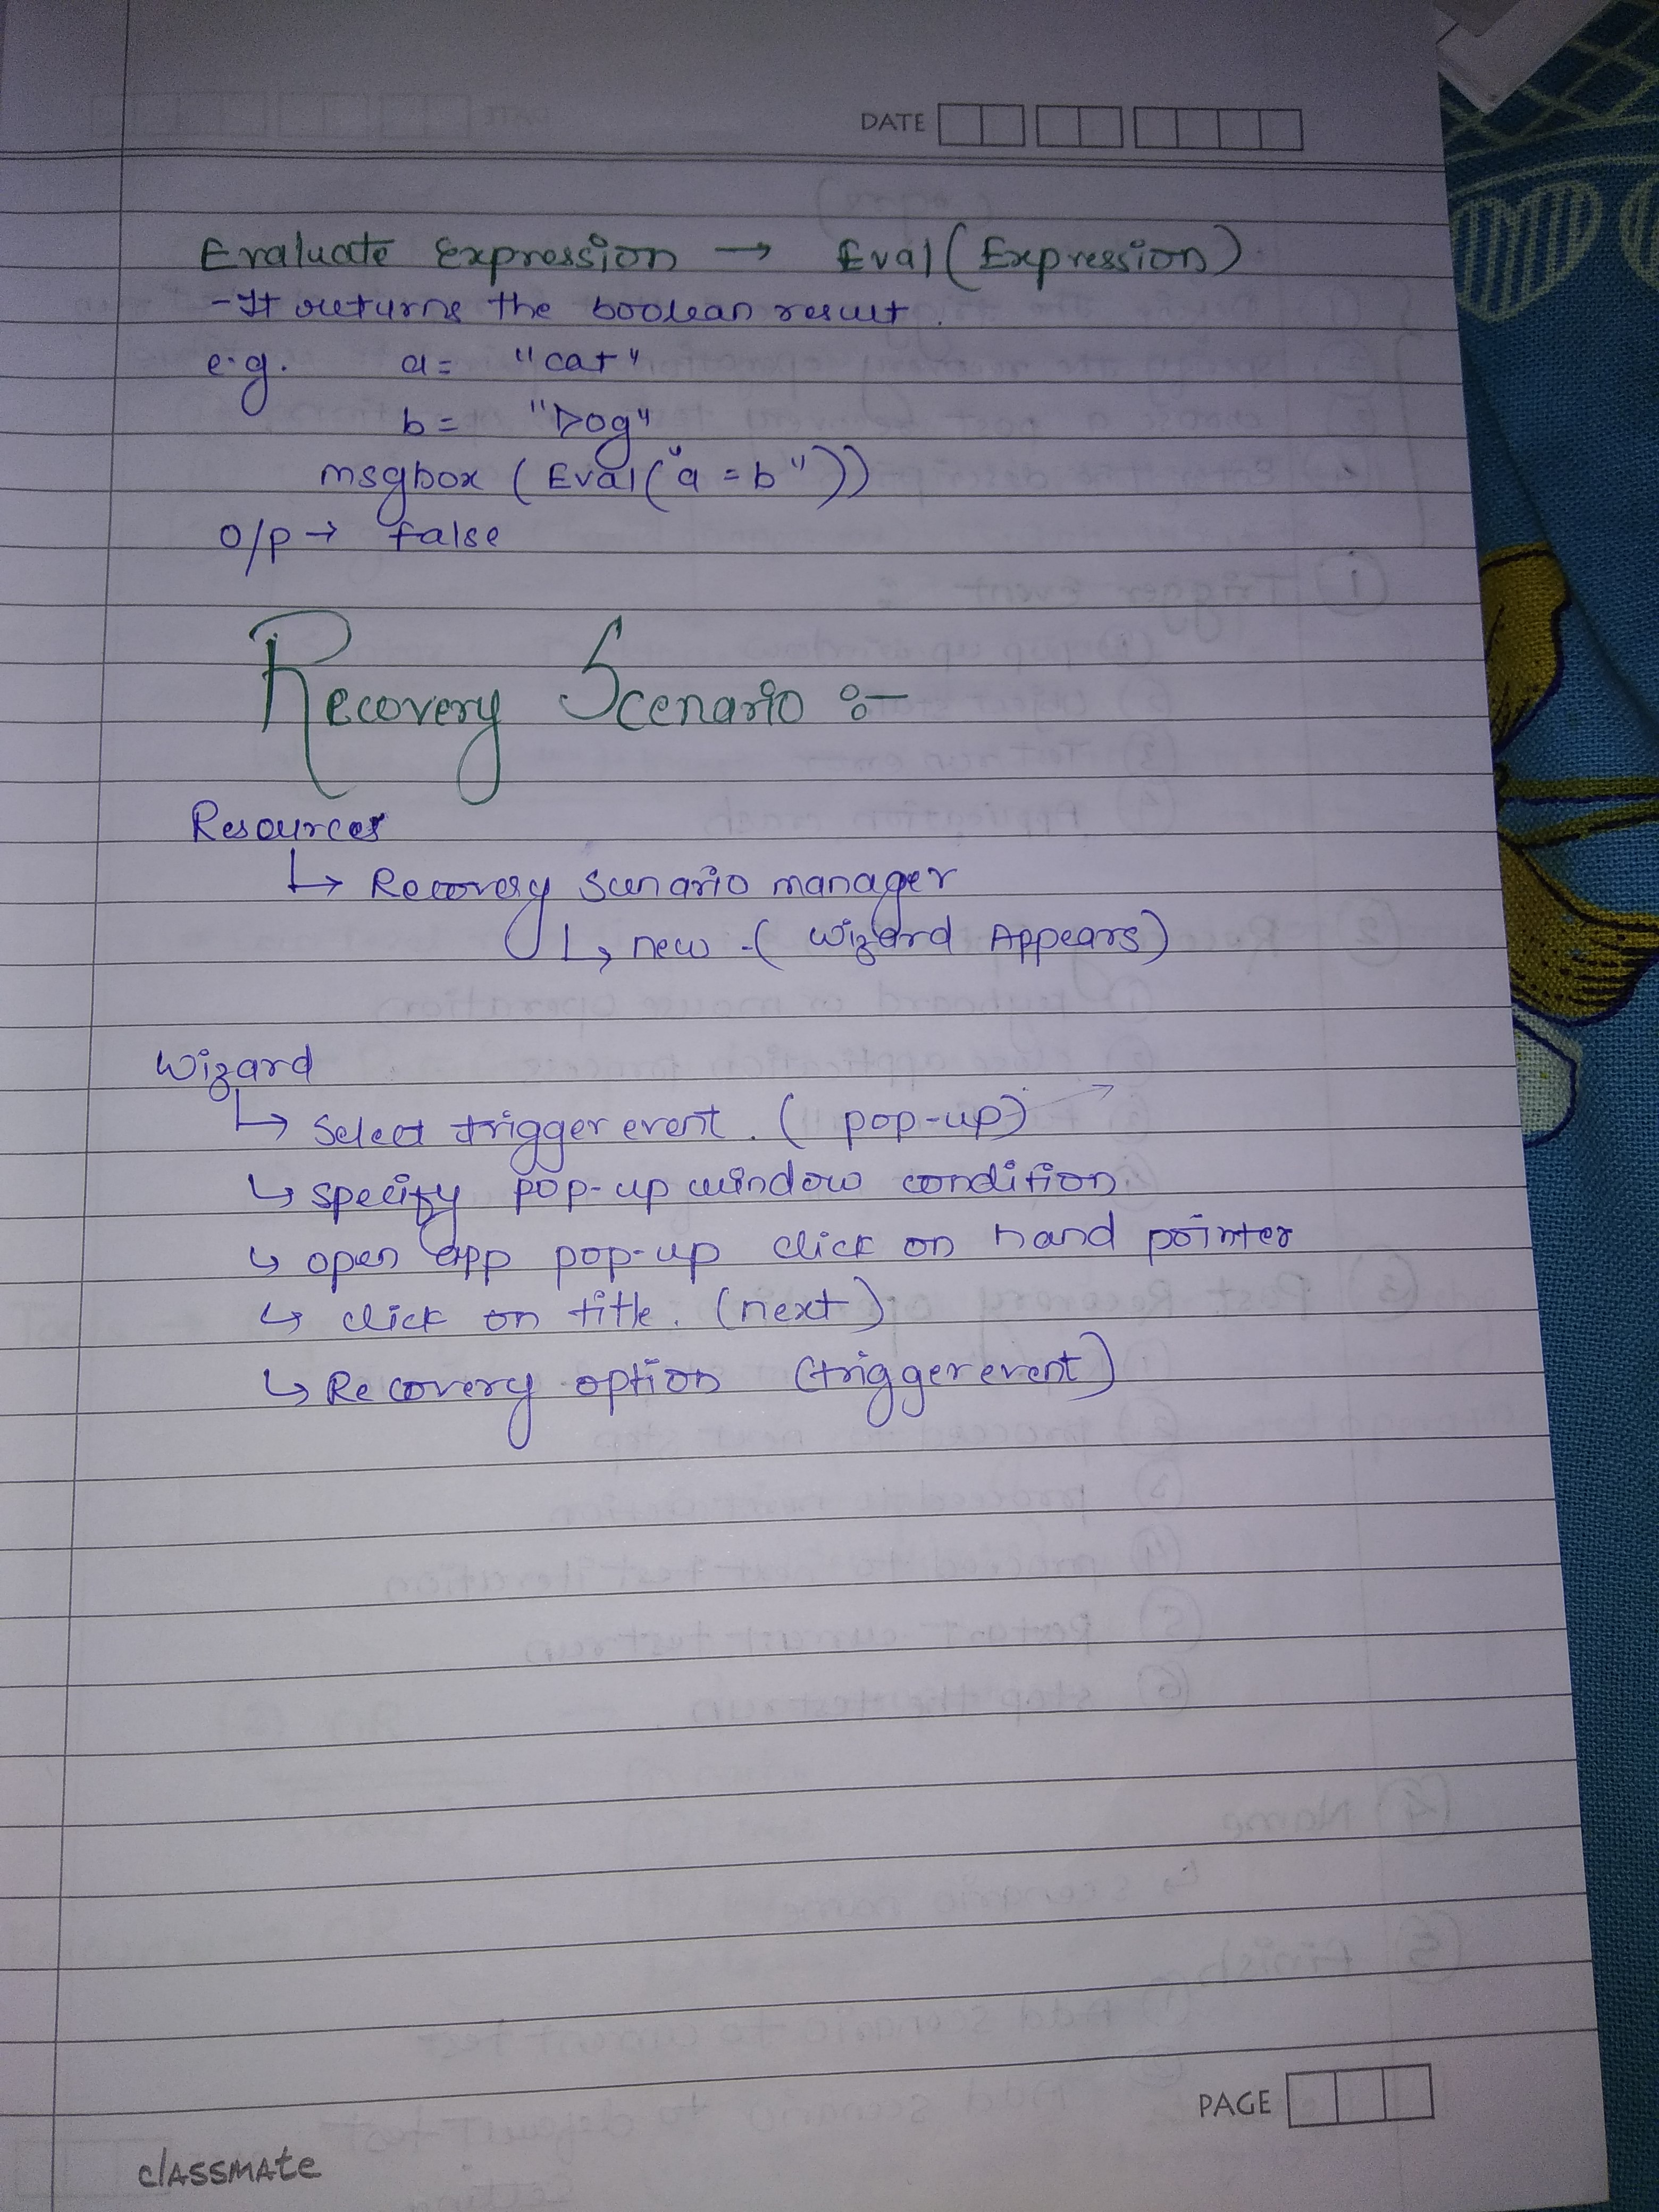 DATE
Evaluate Expression → Eval (Expression)
- It returns the boolean result.
e.g. a = "cat"
b = "Dog"
msgbox (Eval("a = b"))
o/p → false
Recovery Scenario :-
Resources
↳ Recovery Scenario manager
↳ new - ( Wizard Appears)
Wizard
↳ Select trigger event. ( pop-up)
↳ specify pop-up window condition
↳ open app pop-up click on hand pointer
↳ click on title. (next)
↳ Recovery option (trigger event)
PAGE
classmate